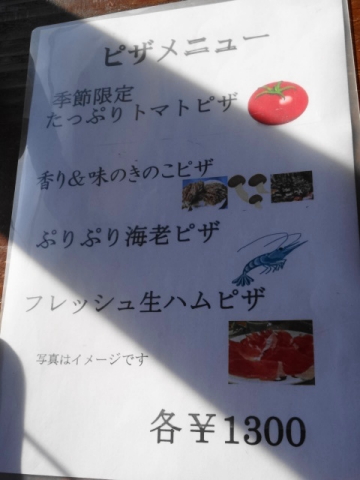 ピザメニュー
季節限定
たっぷりトマトピザ
香り&味のきのこピザ
ぷりぷり海老ピザ
フレッシュ生ハムピザ
写真はイメージです
各￥1300